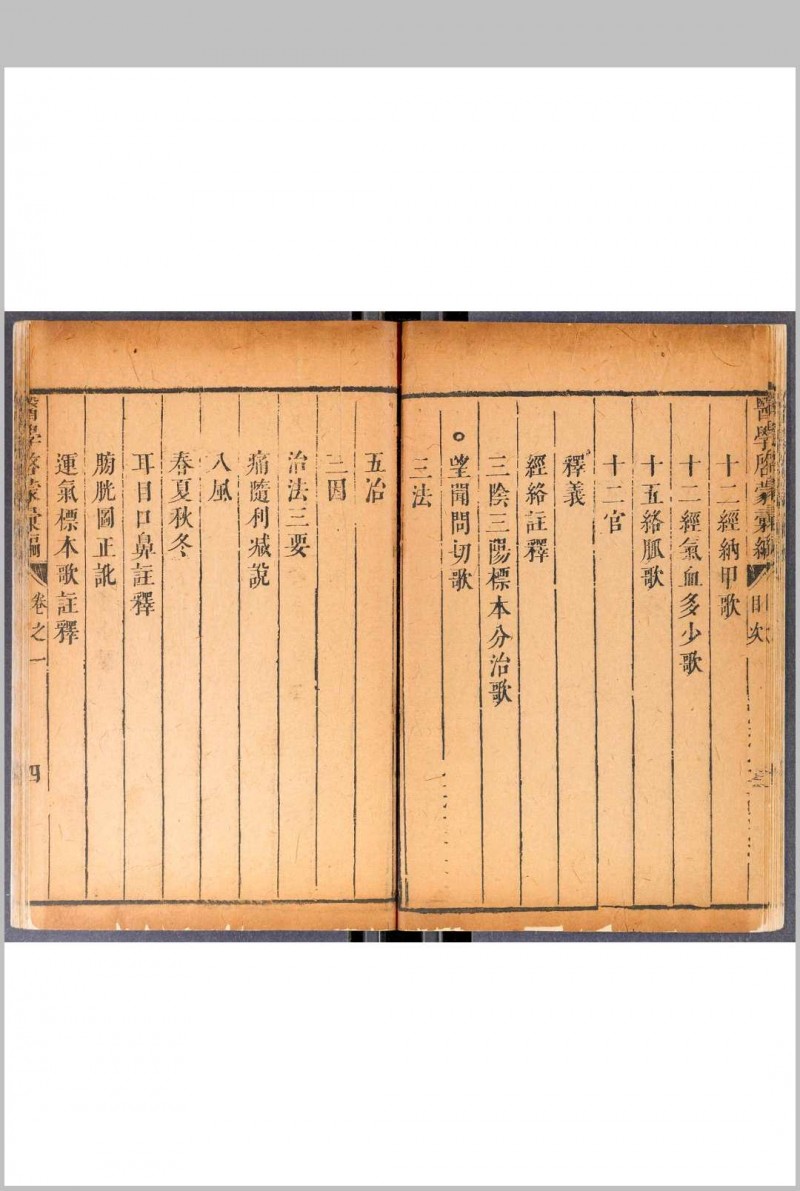 醫學啓蒙彙編
目次
三
十二經納甲歌
十二經氣血多少歌
十五絡脈歌
十二官
釋義
經絡註釋
三陰三陽標本分治歌
望聞問切歌
三法
五治
三因
治法三要
痛隨利减說
八風
春夏秋冬
耳目口鼻註釋
膀胱圖正訛
運氣標本歌註釋
醫學啓蒙彙編
卷之一
四